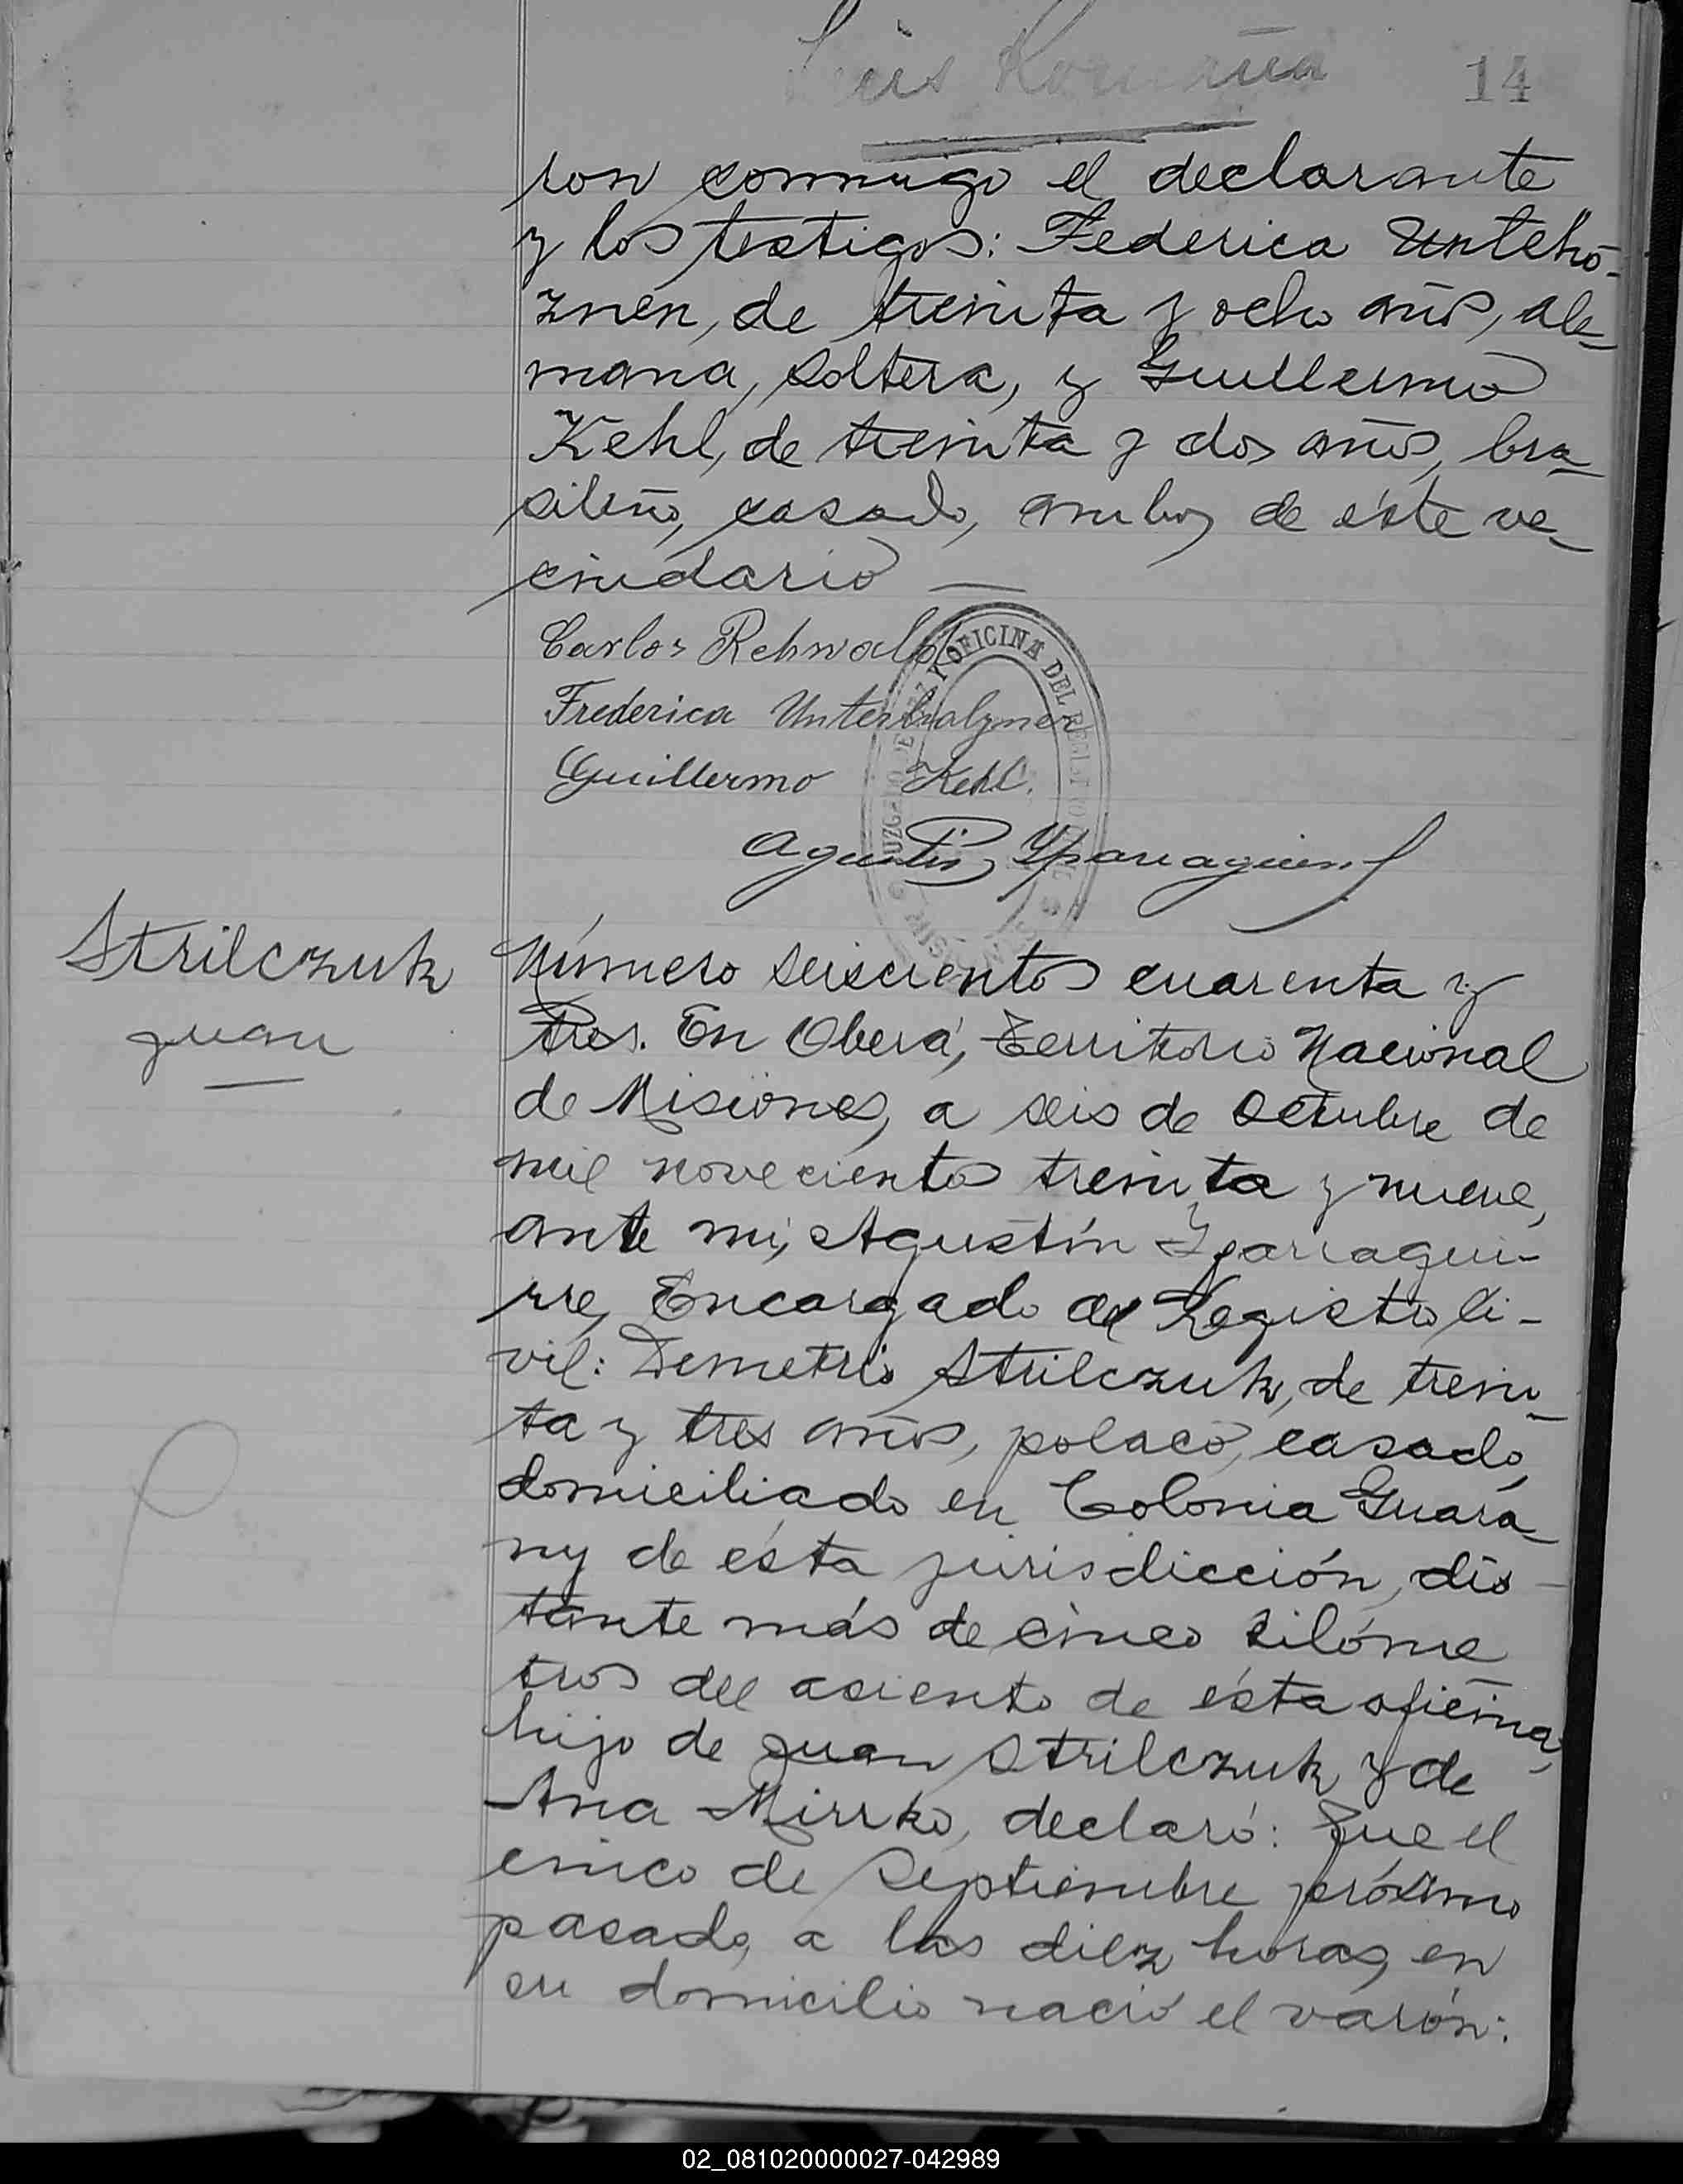 Luis Romaña
14
ron conmigo el declarante
y los testigos: Federica Untehó-
znen, de treinta y ocho años, ale-
mana, soltera, y Guillermo
Kehl, de treinta y dos años, bra-
sileño, casado, ambos de éste ve-
cindario —
Carlos Rehwald
Frederica Unterhalzner
Guillermo Kehl.
OFICINA DEL
Agustín Yparraguirre
Strilczuk
Juan
Número seiscientos cuarenta y
tres. En Oberá, Territorio Nacional
de Misiones, a seis de Octubre de
mil novecientos treinta y nueve,
ante mi, Agustín Yparragui-
rre, Encargado del Registro Ci-
vil: Demetrio Strilczuk, de trein-
ta y tres años, polaco, casado,
domiciliado en Colonia Guara-
ny de ésta jurisdicción, dis-
tante más de cinco kilóme
tros del asiento de ésta oficina,
hijo de Juan Strilczuk y de
Ana Mirrko, declaró: Que el
cinco de Septiembre próximo
pasado, a las diez horas, en
su domicilio nació el varón:
02_081020000027-042989